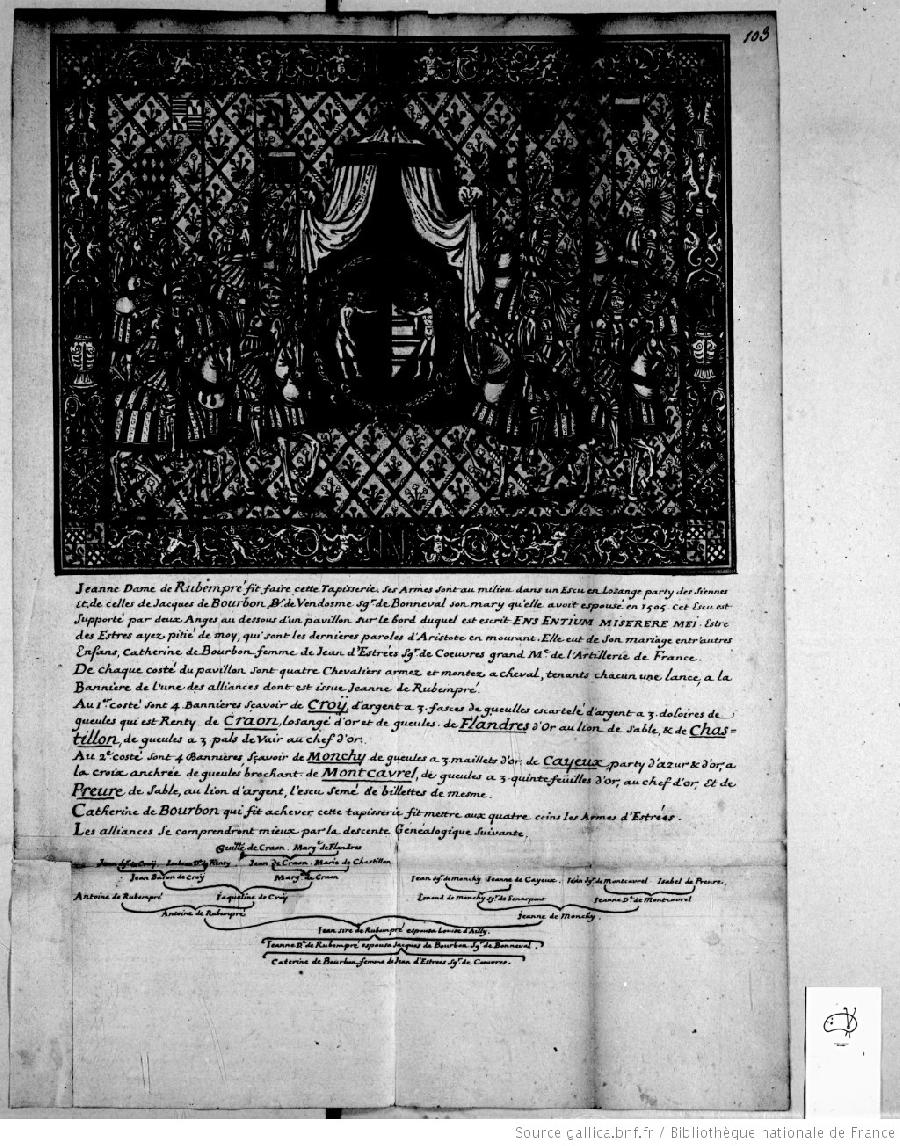 103
Jeanne Dame de Rubempré fit faire cette Tapisserie. ses Armes sont au milieu dans un Escu en Lozange party des siennes
et de celles de Jacques de Bourbon, Bd. de Vendosme sgr. de Bonneval son mary qu'elle avoit espousé en 1505. Cet Escu est
supporté par deux Anges au dessous d'un pavillon sur le bord duquel est escrit ENS ENTIUM MISERERE MEI. Estre
des Estres ayez pitié de moy, qui sont les dernieres paroles d'Aristote en mourant. Elle eut de son mariage entr'autres
Enfans, Catherine de Bourbon femme de Jean d'Estrées Sgr. de Coeuvres grand Me. de l'Artillerie de France.
De chaque costé du pavillon sont quatre Chevaliers armez et montez a cheval, tenants chacun une lance, a la
Banniere de l'une des alliances dont est issue Jeanne de Rubempré.
Au 1er. costé sont 4 Bannieres sçavoir de Croÿ, d'argent a 3. fasces de gueulles escartelé d'argent a 3. doloires de
gueules qui est Renty. de Craon, losangé d'or et de gueules. de Flandres d'or au lion de sable, & de Chas=
tillon, de gueules a 3 pals de Vair au chef d'or.
Au 2e. costé sont 4 Bannieres sçavoir de Monchy de gueules a 3 maillets d'or. de Cayeux, party d'azur & d'or, a
la croix anchrée de gueules brochant. de Montcavrel, de gueules a 3. quintefeuilles d'or, au chef d'or, Et de
Preure de sable, au lion d'argent, l'escu semé de billettes de mesme.
Catherine de Bourbon qui fit achever cette tapisserie fit mettre aux quatre coins les Armes d'Estrées.
Les alliances se comprendront mieux par la descente Genéalogique suivante.
de Craon. Marg. de Flandres
de Croÿ. de Renty Jean de Craon. Marie de Chastillon
Jean de Croÿ Marg. de Craon Jean sgr. de monchy Jeanne de Cayeux. Jean sgr. de montcavrel. Isabel de Preure.
Antoine de Rubempré Jaqueline de Croÿ de monchy sgr. de Jeanne De. de Montcavrel
Antoine de Rubempré Jeanne de Monchy.
Jean sire de Rubempré espousa Louise d'Ailly.
Jeanne De. de Rubempré espousa Jacques de Bourbon Sgr. de Bonneval
Caterine de Bourbon femme de Jean d'Estrees Sgr. de Coeuvres.
Source gallica.bnf.fr / Bibliothèque nationale de France